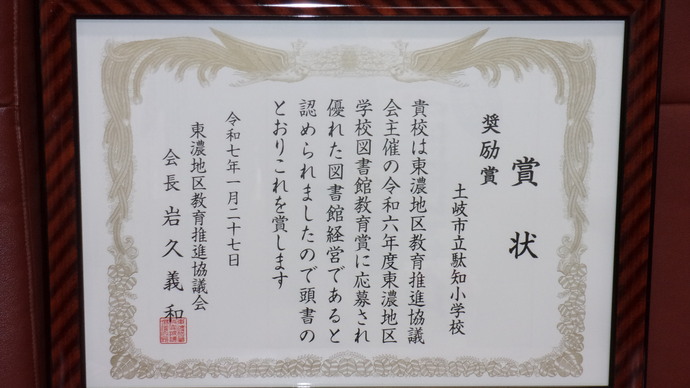 賞状
奨励賞
土岐市立駄知小学校
貴校は東濃地区教育推進協議
会主催の令和六年度東濃地区
学校図書館教育賞に応募され
優れた図書館経営であると
認められましたので頭書の
とおりこれを賞します
令和七年一月二十七日
東濃地区教育推進協議会
会長 岩久義和